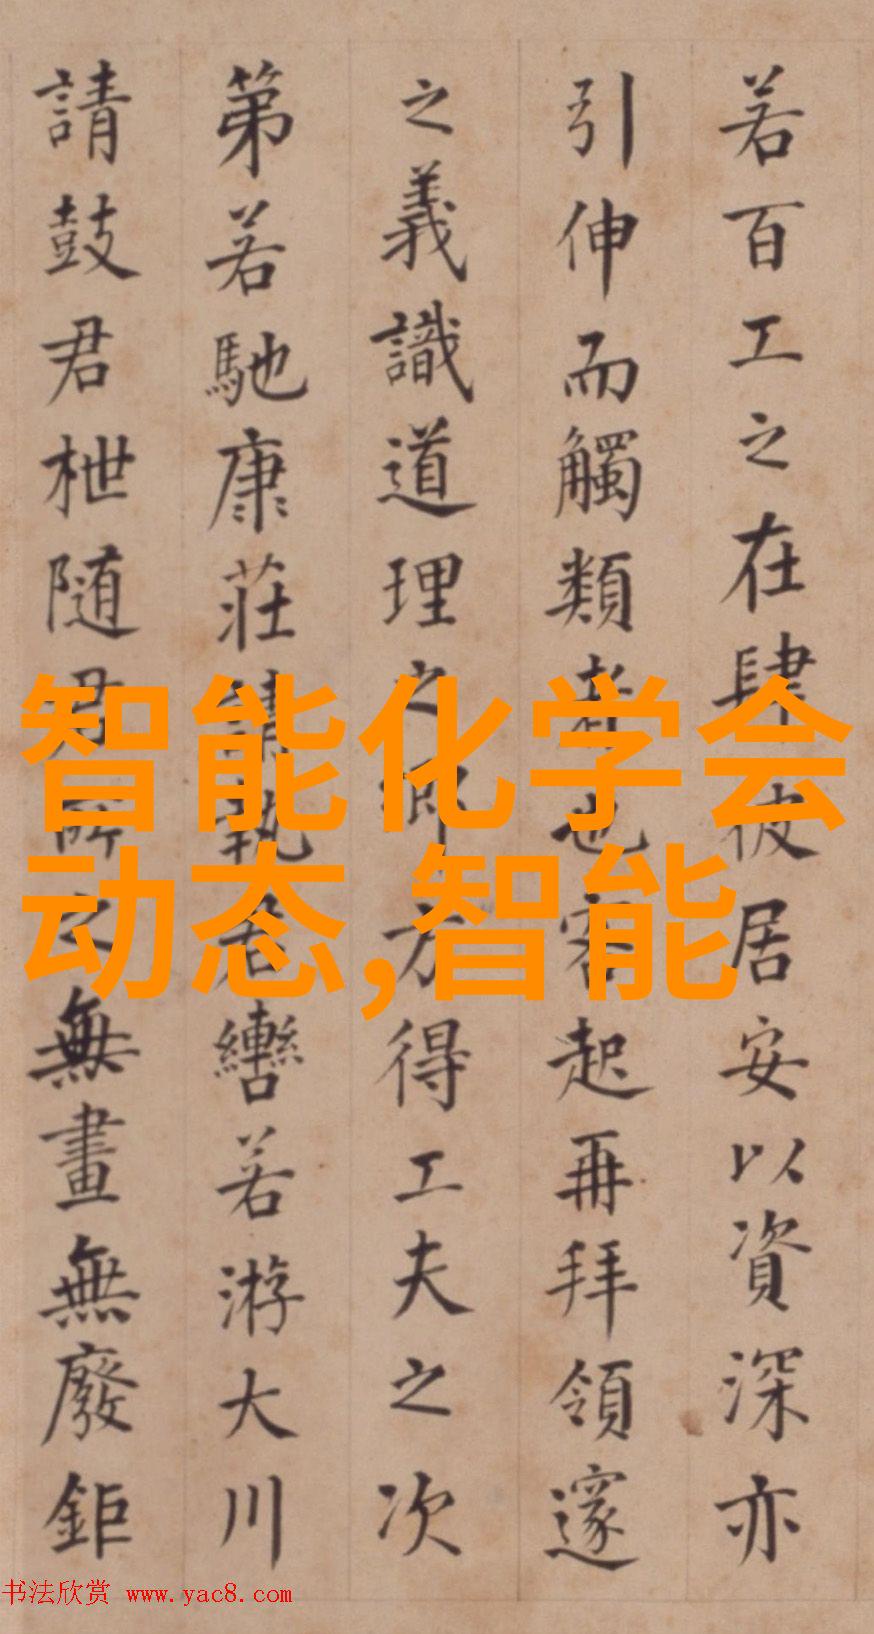 若百工之在肆彼居安以資深亦
引伸而觸類者也客起再拜領邃
之義識道理之鄉方得工夫之次
第若馳康莊請執君轡若游大川
請鼓君枻随君所之無畫無廢鉅
智能化学会
动态,智能
书法欣赏 www.yac8.com